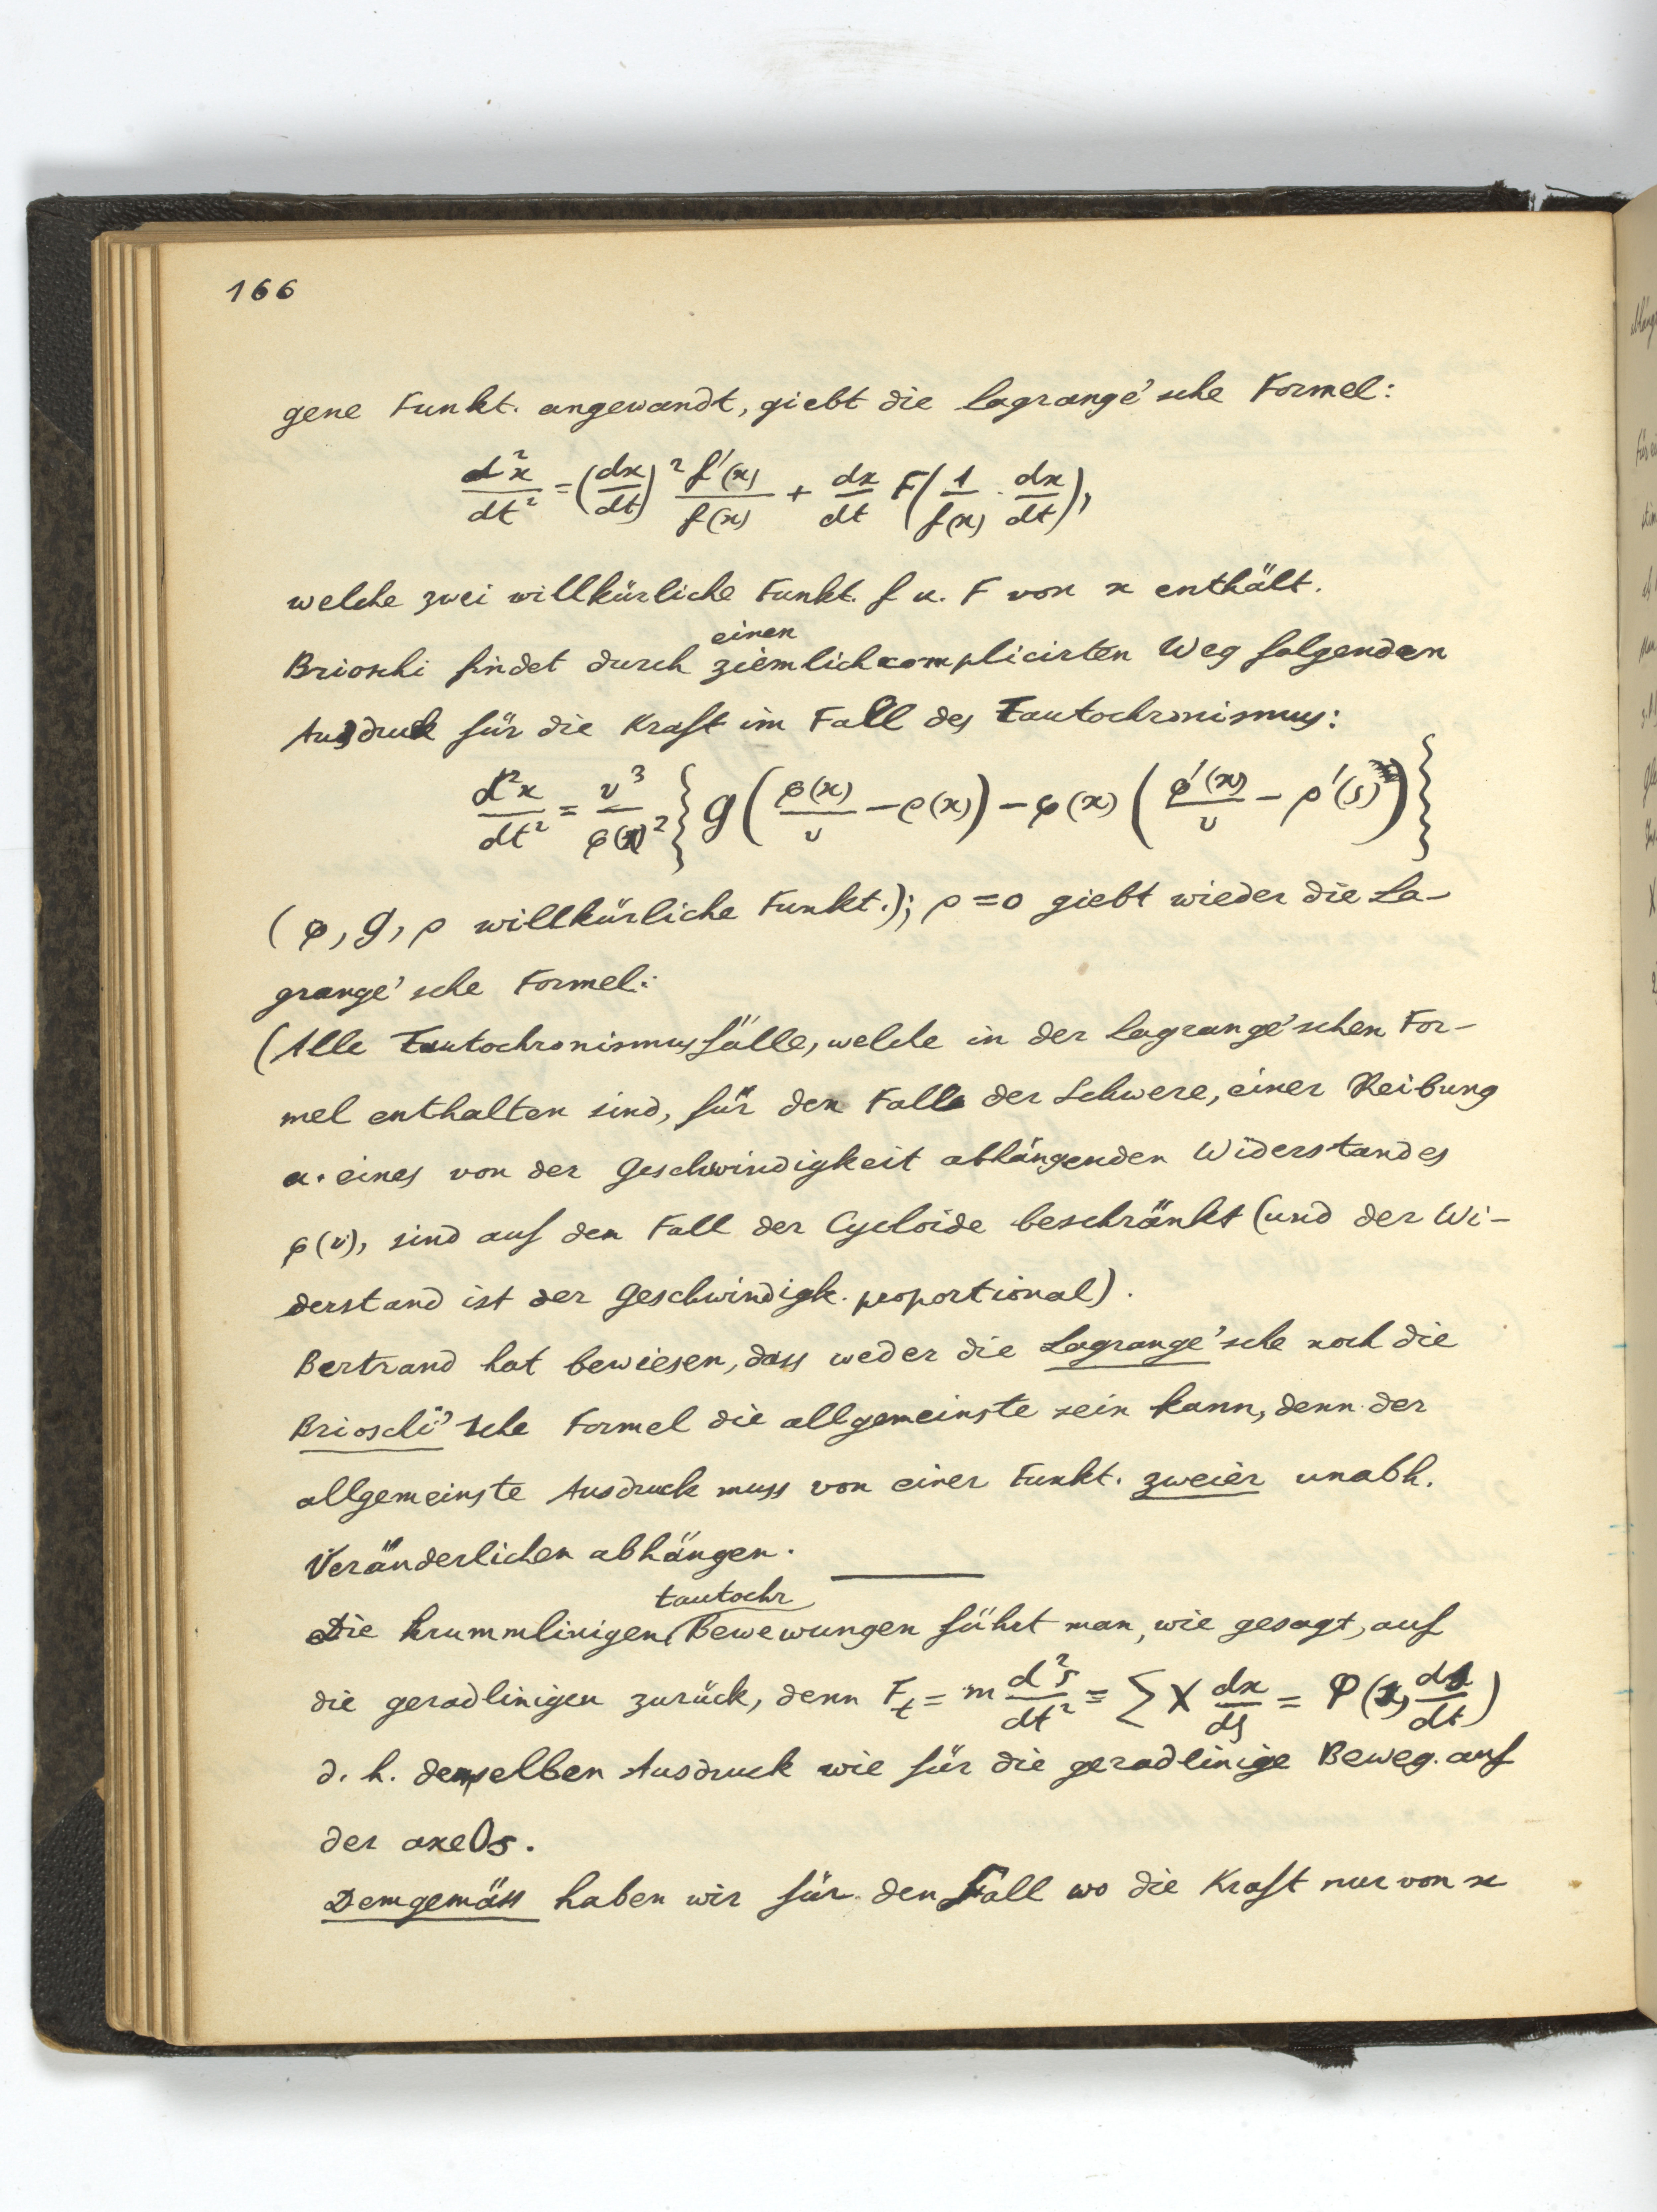 166
gene Funkt. angewandt, giebt die Lagrange'sche Formel:
d²x/dt² = (dx/dt)² f'(x)/f(x) + dx/dt F(1/f(x) · dx/dt),
welche zwei willkürliche Funkt. f u. F von x enthält.
einen
Brioschi findet durch ziemlich complicirten Weg folgenden
Ausdruck für die Kraft im Fall des Tautochronismus:
d²x/dt² = v³/φ(x)² { g(φ(x)/v − ρ(x)) − φ(x) (φ'(x)/v − ρ'(s)) }
(φ, g, ρ willkürliche Funkt.); ρ = 0 giebt wieder die La-
grange'sche Formel:
(Alle Tautochronismusfälle, welche in der Lagrange'schen For-
mel enthalten sind, für den Fall der Schwere, einer Reibung
u. eines von der Geschwindigkeit abhängenden Widerstandes
φ(v), sind auf den Fall der Cycloide beschränkt (und der Wi-
derstand ist der Geschwindigk. proportional).
Bertrand hat bewiesen, dass weder die Lagrange'sche noch die
Brioschi'sche Formel die allgemeinste sein kann, denn der
allgemeinste Ausdruck muss von einer Funkt. zweier unabh.
Veränderlichen abhängen.
tautochr
Die krummlinigen Bewewungen führt man, wie gesagt, auf
die geradlinigen zurück, denn F_t = m d²s/dt² = Σ X dx/ds = φ(s, ds/dt)
d. h. denselben Ausdruck wie für die geradlinige Beweg. auf
der axe Os.
Demgemäss haben wir für den Fall wo die Kraft nur von x